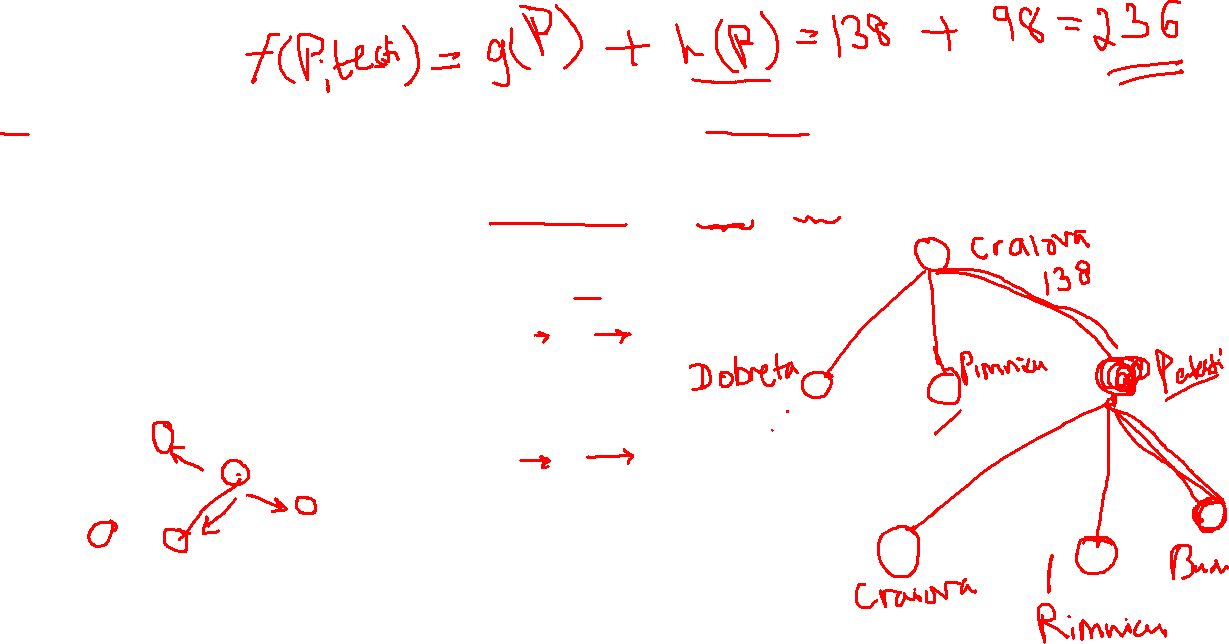 f(P,testi) = g(P) + h(P) = 138 + 98 = 236
Craiova
138
Dobreta
Pimnicu
Craiova
Rimnicu